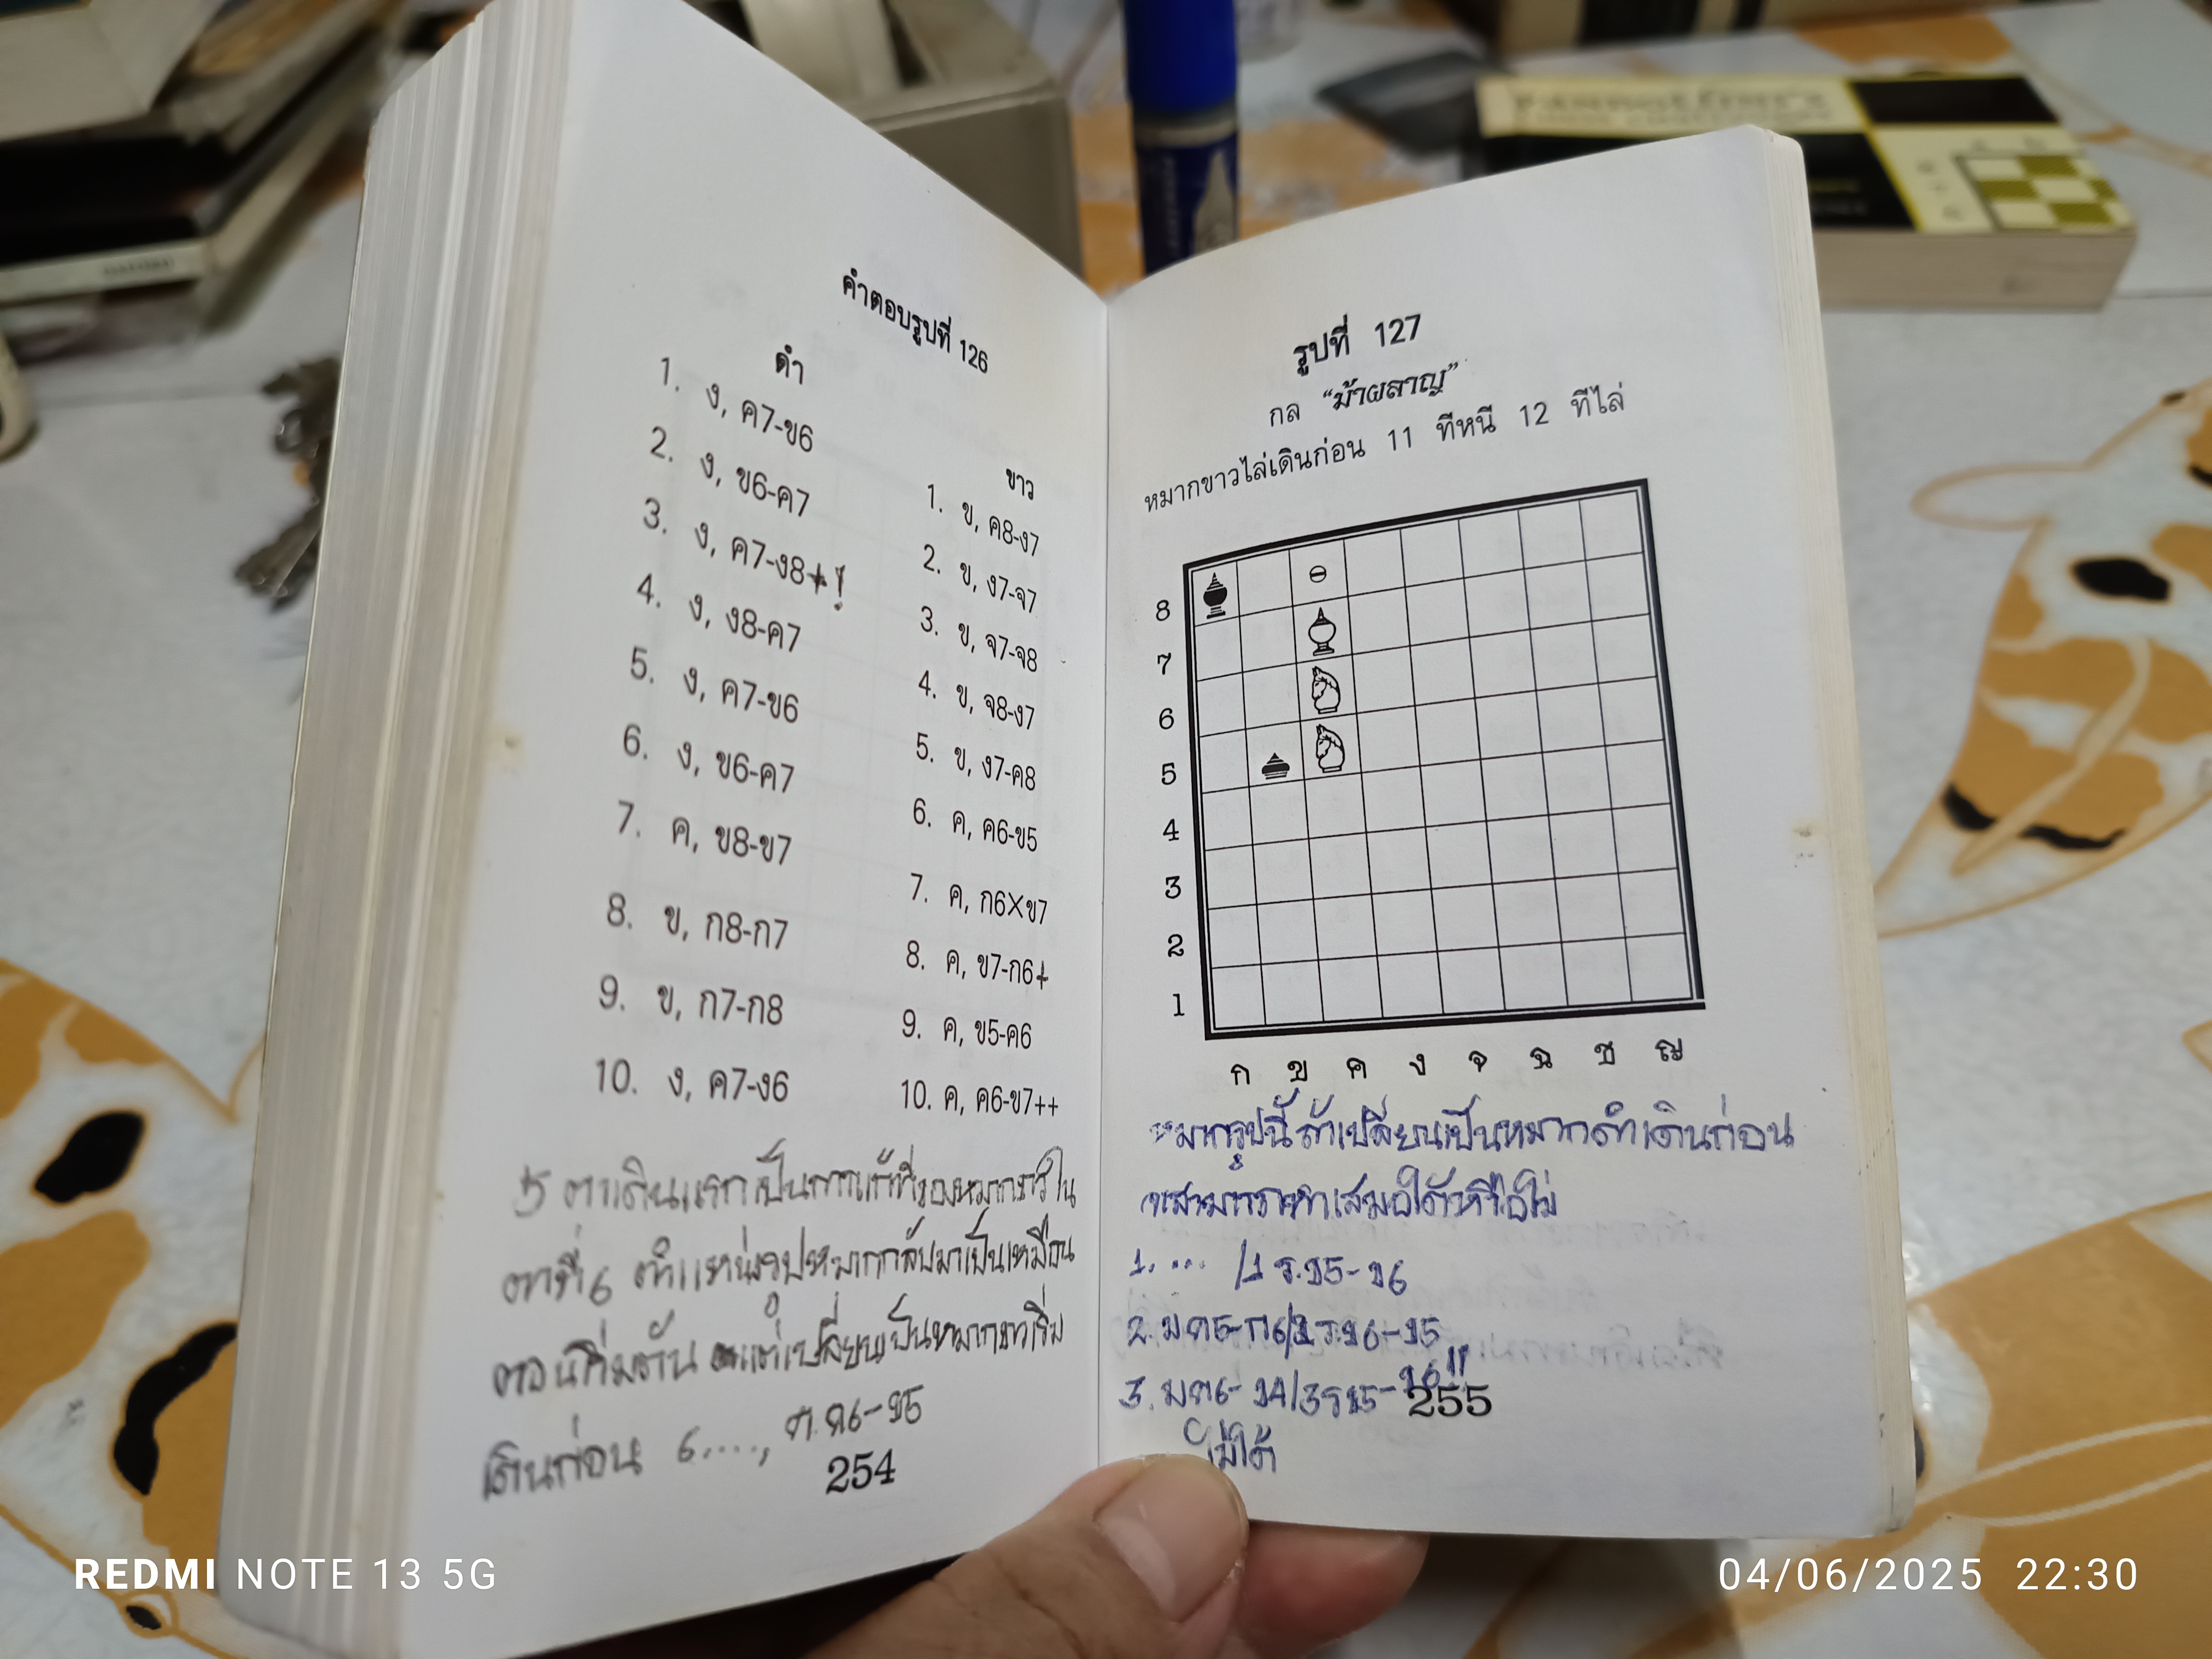 คำตอบรูปที่ 126
ดำ
ขาว
1. ง, ค7-ข6
1. ข, ค8-ง7
2. ง, ข6-ค7
2. ข, ง7-จ7
3. ง, ค7-ง8+!
3. ข, จ7-จ8
4. ง, ง8-ค7
4. ข, จ8-ง7
5. ง, ค7-ข6
5. ข, ง7-ค8
6. ง, ข6-ค7
6. ค, ค6-ข5
7. ค, ข8-ข7
7. ค, ก6×ข7
8. ข, ก8-ก7
8. ค, ข7-ก6+
9. ข, ก7-ก8
9. ค, ข5-ค6
10. ง, ค7-ง6
10. ค, ค6-ข7++
5 ตาเดินแรกเป็นการแก้ทีของหมากขาวใน
ตาที่ 6 ตำแหน่งรูปหมากกลับมาเป็นเหมือน
ตอนเริ่มต้น แต่เปลี่ยนเป็นหมากขาวเริ่ม
เดินก่อน 6...., ค.ค6-ข5
254
รูปที่ 127
กล “ม้าผลาญ”
หมากขาวไล่เดินก่อน 11 ทีหนี 12 ทีไล่
8
7
6
5
4
3
2
1
ก ข ค ง จ ฉ ช ญ
หมากรูปนี้ถ้าเปลี่ยนเป็นหมากดำเดินก่อน
จะสามารถทำเสมอได้หรือไม่
1. ... /1 ร.ข5-ข6
2. ม ค5-ก6/2 ร.ข6-ข5
3. ม ค6-ข4/3 ร ข5-ข6!!
ไม่ได้
255
REDMI NOTE 13 5G
04/06/2025 22:30